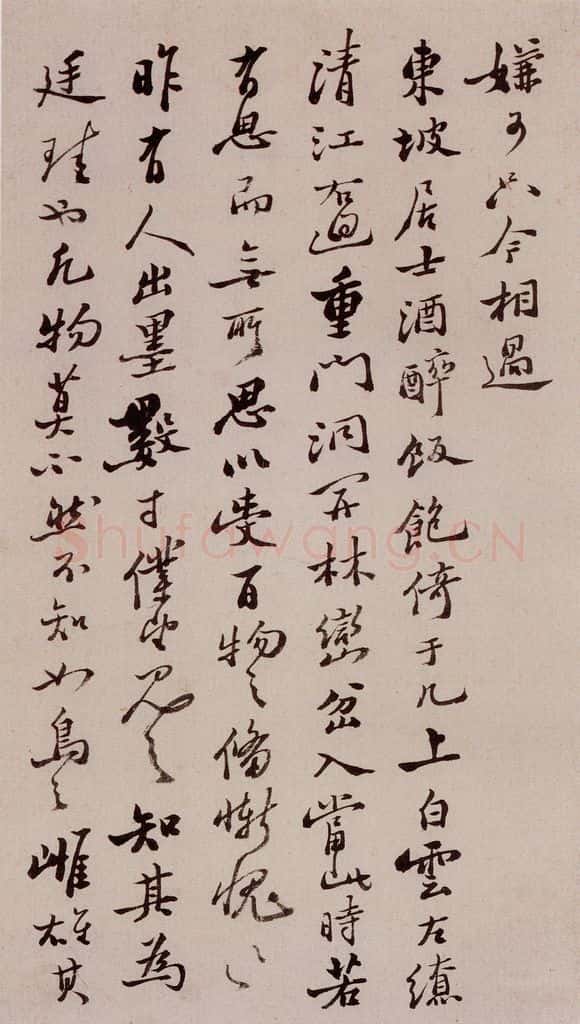 嫌可只今相過
東坡居士酒醉飯飽倚于几上白雲左繚
清江右迴重門洞開林巒岔入當此時若
有思而無所思以受百物之備慚愧慚愧
昨有人出墨數寸僕望見之知其為
廷珪也凡物莫不然不知如鳥之雌雄其
Shufawang.CN